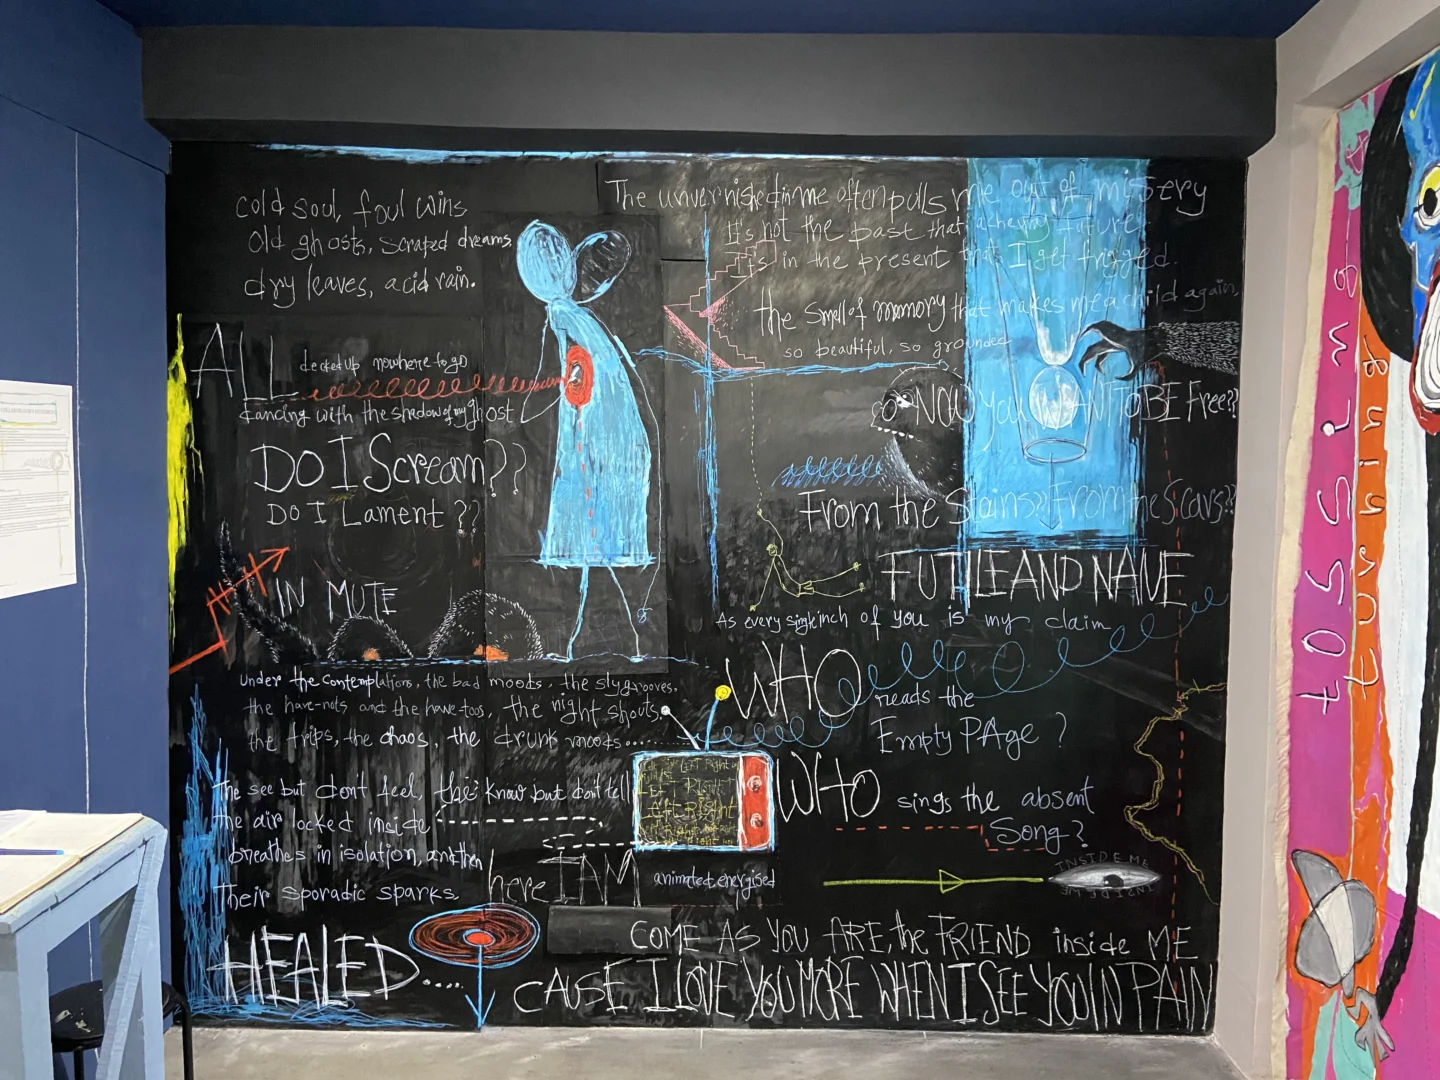 cold soul, foul wins
old ghosts, scraped dreams
dry leaves, acid rain.
ALL decked up nowhere to go
dancing with the shadow of my ghost
DO I Scream??
DO I Lament??
IN MUTE
under the contemplations, the bad moods, the sly grooves,
the have-nots and the have-toos, the night shouts,
the trips, the chaos, the drunk moods....
The see but don't feel, the know but don't tell
the air locked inside
breathes in isolation, and then
their sporadic sparks.
here I AM animated, energised
HEALED.....
The unvernished in me often pulls me out of misery
It's not the past that achening future
It's in the present that I get trigged.
the smell of memory that makes me a child again,
so beautiful, so grounded
SO NOW you WANT TO BE Free??
From the Stains?? From the Scars??
FUTILE AND NAIVE
As every single inch of you is my claim
WHO reads the
Empty PAge?
WHO sings the absent
Song?
Left Right
Left Right
Left Right
INSIDE ME
INSIDE ME
COME AS YOU ARE, the FRIEND inside ME
CAUSE I LOVE YOU MORE WHEN I SEE YOU IN PAIN